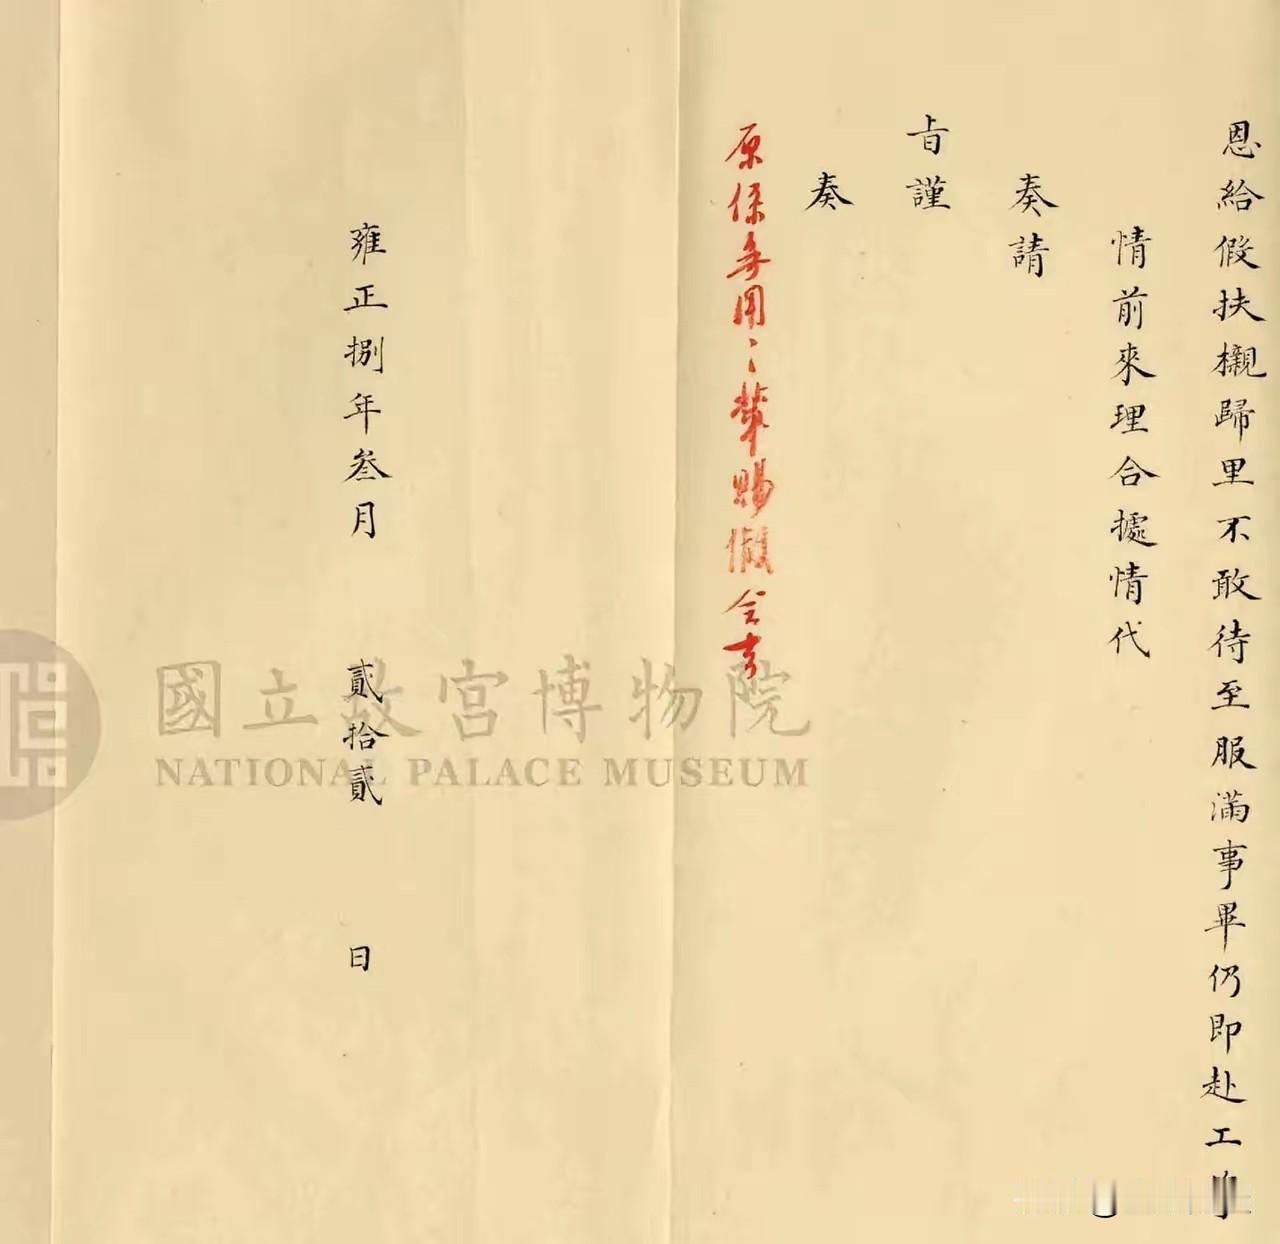 恩給假扶櫬歸里不敢待至服滿事畢仍即赴工
情前來理合據情代
奏請
旨謹
奏
原係無用之輩賜假令去
雍正捌年叁月 貳拾貳 日
國立故宮博物院
NATIONAL PALACE MUSEUM